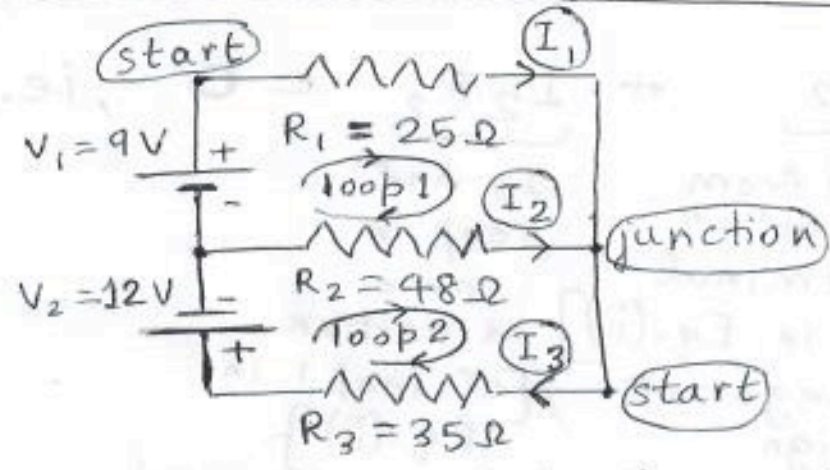 start
I₁
V₁ = 9V
+
-
R₁ = 25Ω
loop1
I₂
junction
V₂ = 12V
-
+
R₂ = 48Ω
loop2
I₃
start
R₃ = 35Ω